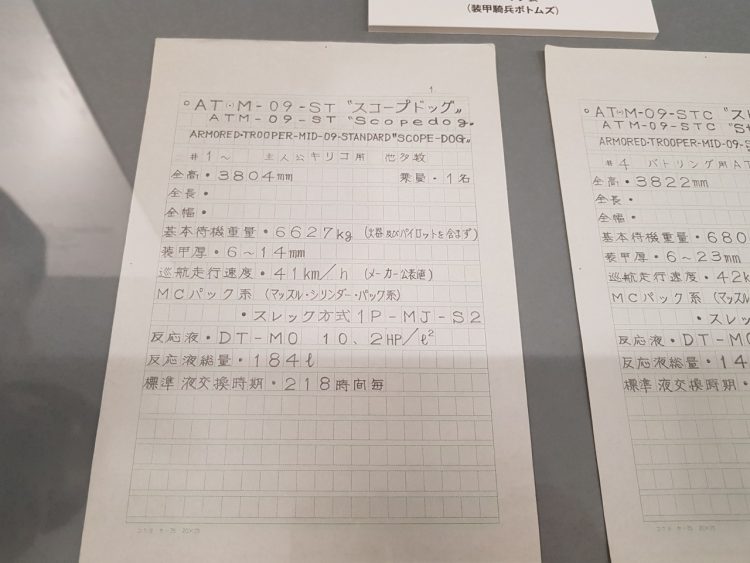 (装甲騎兵ボトムズ)
1
○ AT・M-09-ST "スコープドッグ„
ATM-09-ST "Scopedog„
ARMORED・TROOPER-MID-09-STANDARD "SCOPE-DOG„
#1～ 主人公キリコ用 他多数
全高・3804mm 乗員・1名
全長・
全幅・
基本待機重量・6627kg (火器及びパイロットを含まず)
装甲厚・6～14mm
巡航走行速度・41km/h (メーカー公表値)
MCパック系 (マッスル・シリンダー・パック系)
・スレック方式1P-MJ-S2
反応液・DT-MO 10、2HP/ℓ²
反応液総量・184ℓ
標準液交換時期・218時間毎
コクヨ ケー35 20×25
○AT・M-09-STC "ス
ATM-09-STC "S
ARMORED・TROOPER-MID-09-
#4 バトリング用AT
全高・3822mm
全長・
全幅・
基本待機重量・680
装甲厚・6～23mm
巡航走行速度・42k
MCパック系 (マッ
・スレッ
反応液・DT-MO
反応液総量・14
標準液交換時期・
コクヨ ケー35 20×25